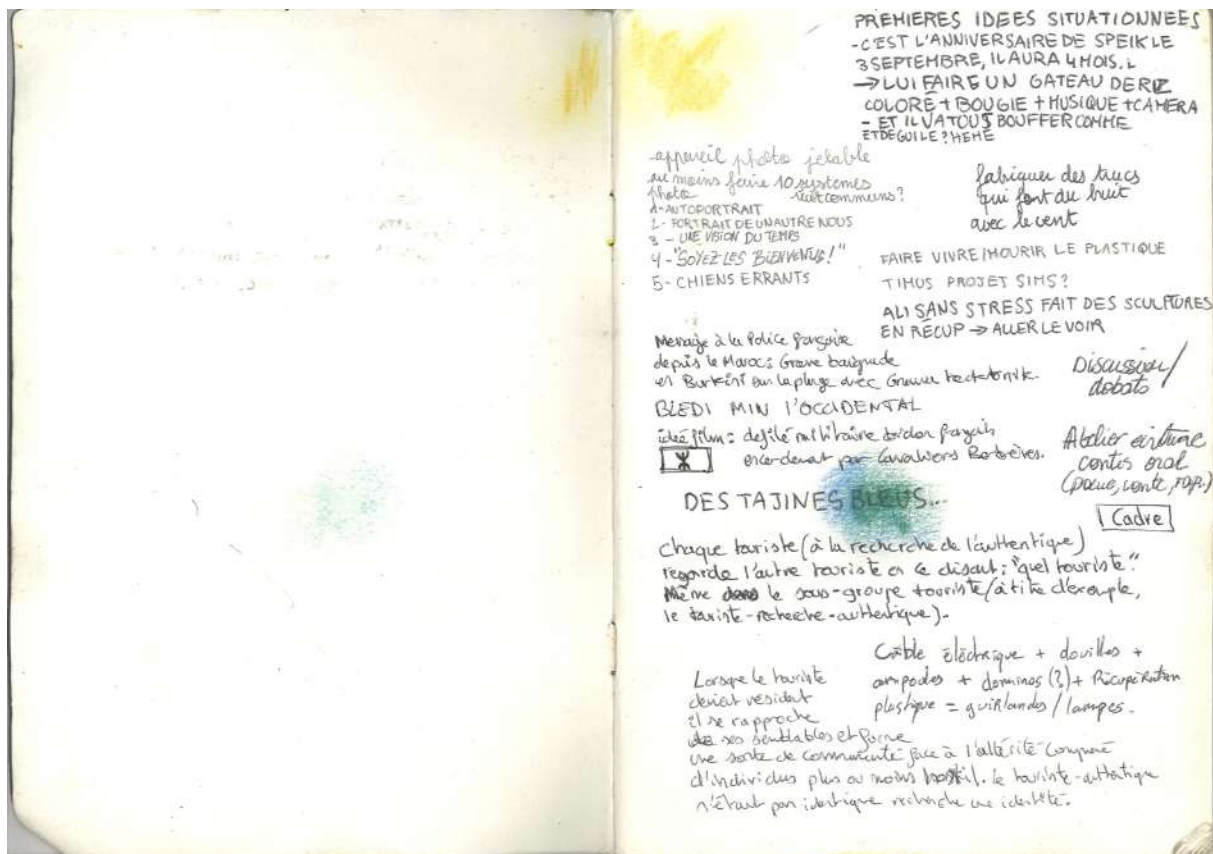 PREMIERES IDEES SITUATIONNEES
- C'EST L'ANNIVERSAIRE DE SPEIK LE
3 SEPTEMBRE, IL AURA 4 MOIS.
→ LUI FAIRE UN GATEAU DE RIZ
COLORÉ + BOUGIE + MUSIQUE + CAMERA
- ET IL VA TOUS BOUFFER COMME
ET DEGUILE? HEHE
appareil photo jetable
au moins faire 10 systemes
photo communs?
1- AUTOPORTRAIT
2- PORTRAIT DE UN AUTRE NOUS
3 - UNE VISION DU TEMPS
4 - "SOYEZ LES BIENVENUS!"
5- CHIENS ERRANTS
fabriquer des trucs
qui font du bruit
avec le vent
FAIRE VIVRE/MOURIR LE PLASTIQUE
TIMUS PROJET SIMS?
ALI SANS STRESS FAIT DES SCULPTURES
EN RÉCUP → ALLER LE VOIR
Message à la Police française
depuis le Maroc: Grave baignade
en Burkini sur la plage avec
BLEDI MIN l'OCCIDENTAL
idée film = defilé militaire français
par Cavaliers Berbères.
ⵣ
Discussion/
debats
Atelier ecriture
contes oral
(poeme, conte, rap.)
Cadre
DES TAJINES BLEUS...
Chaque touriste (à la recherche de l'authentique)
regarde l'autre touriste en ce disant: "quel touriste".
Même dans le sous-groupe touriste (à titre d'exemple,
le touriste-recherche-authentique).
Câble électrique + douilles +
ampoules + dominos (?) + Récupération
plastique = guirlandes / lampes.
Lorsque le touriste
devient résident
il se rapproche
de ses semblables et forme
une sorte de communauté face à l'altérité composé
d'individus plus ou moins hostil. le touriste-authentique
n'étant pas identique recherche une identité.